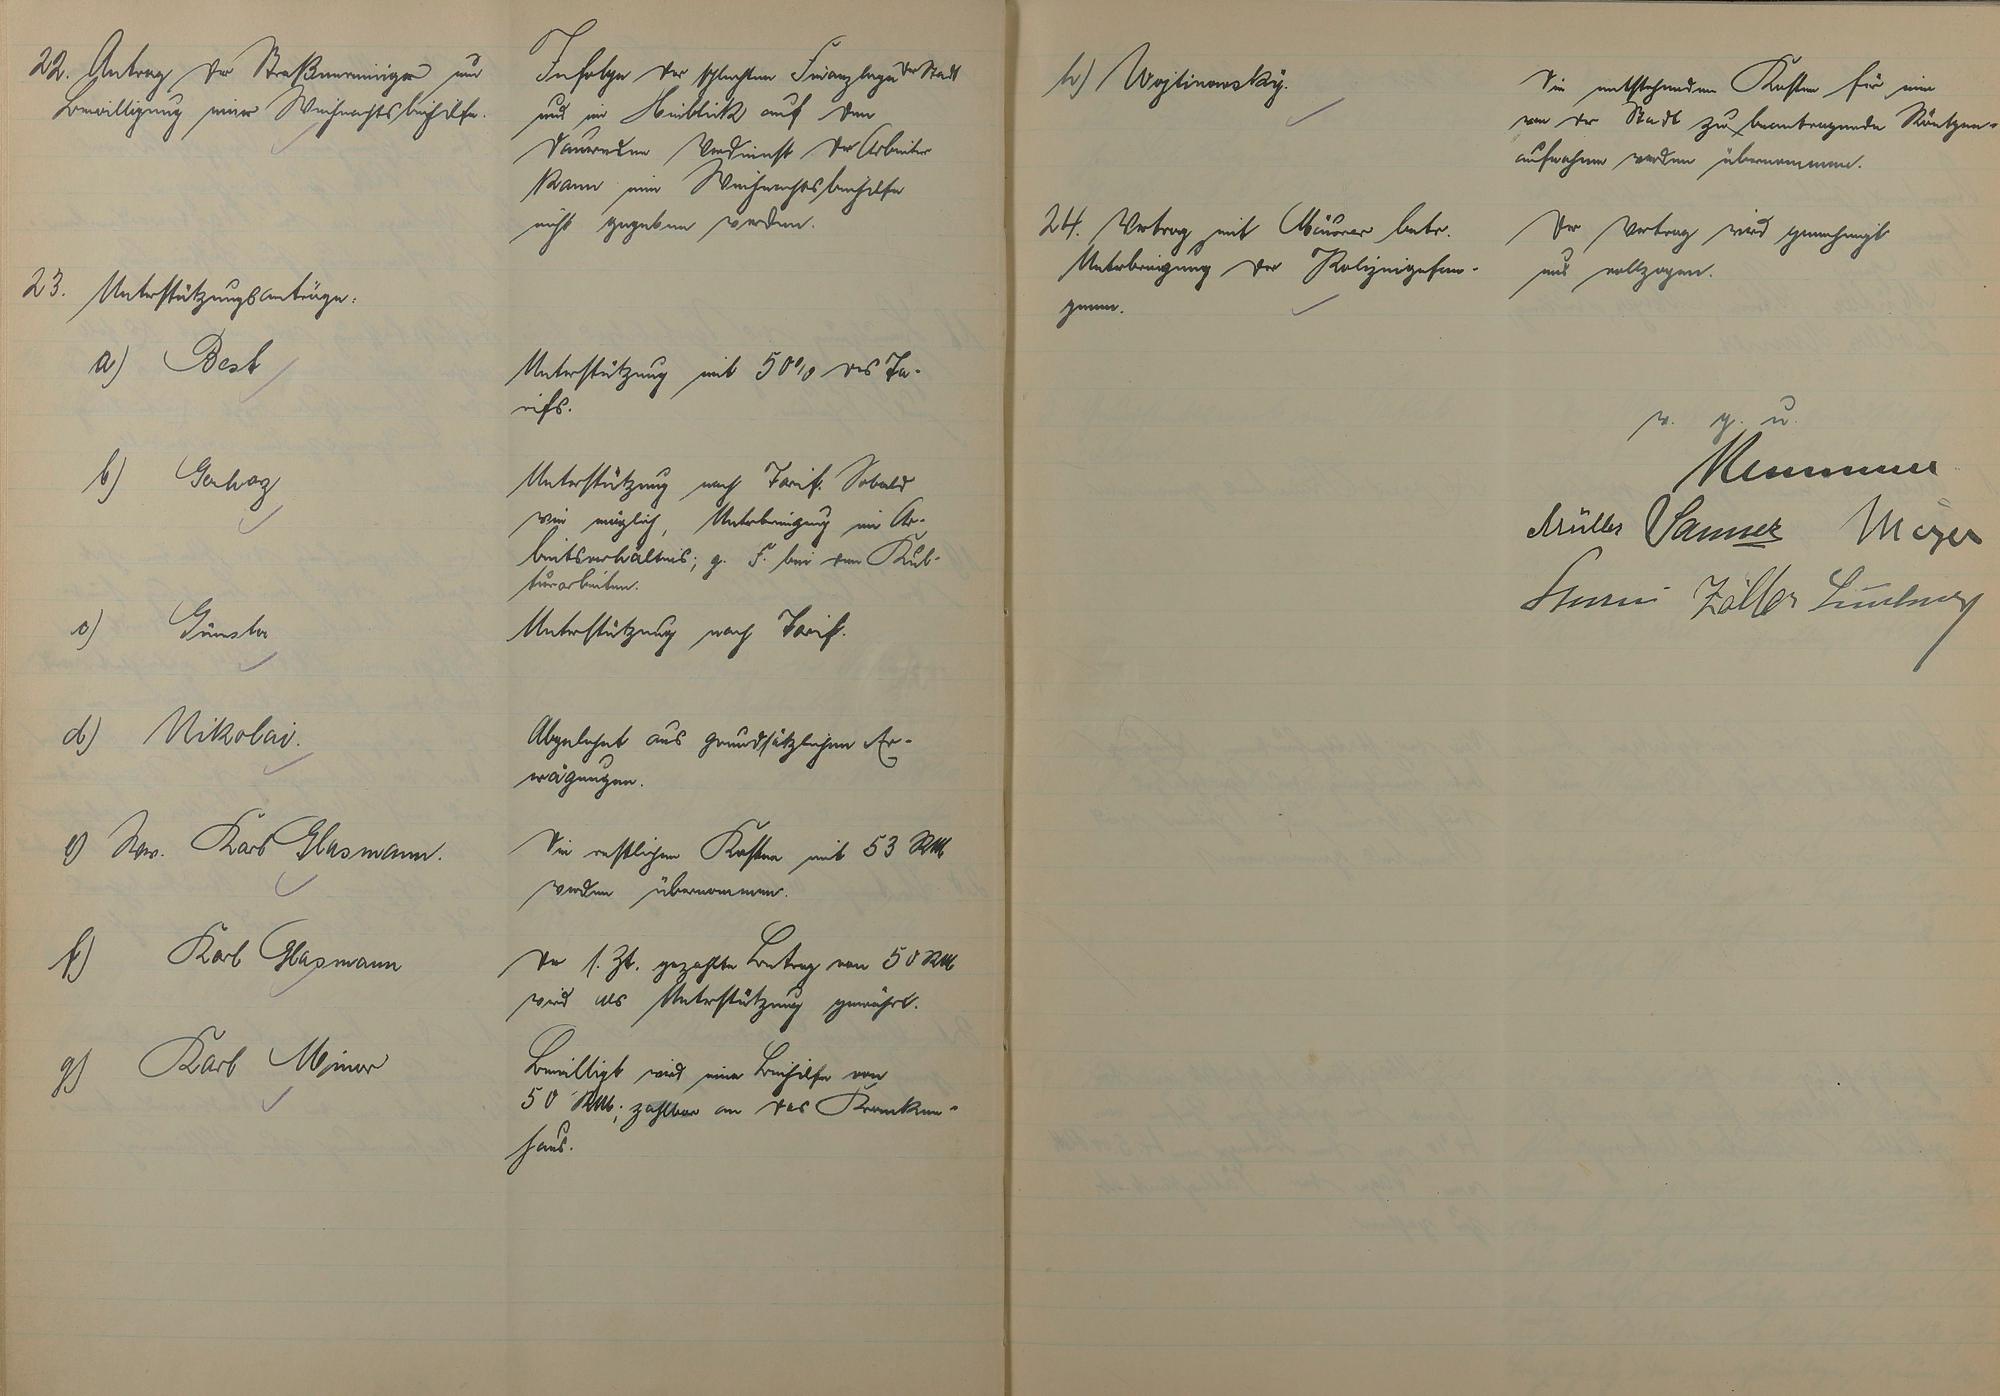 22. Antrag der Straßenreiniger um
Bewilligung einer Weihnachtsbeihilfe.
Infolge der schlechten Finanzlage der Stadt
und im Hinblick auf den
dauernden Verdienst der Arbeiter
kann eine Weihnachtsbeihilfe
nicht gegeben werden.
23. Unterstützungsanträge:
a) Best
Unterstützung mit 50% des Ta-
rifs.
b)
Unterstützung nach Tarif. Sobald
wie möglich, Unterbringung im Ar-
beitsverhältnis; g. F. bei den Kul-
turarbeiten.
c) Günster
Unterstützung nach Tarif.
d) Nikolai.
Abgelehnt aus grundsätzlichen Er-
wägungen.
e) Ww. Karl Glasmann.
Die restlichen Kosten mit 53 RM
werden übernommen.
f) Karl Glasmann
Der s. Zt. gezahlte Betrag von 50 RM
wird als Unterstützung gewährt.
g) Karl Minor
Bewilligt wird eine Beihilfe von
50 RM; zahlbar an das Kranken-
haus.
h) Wojtinowsky.
Die entstehenden Kosten für eine
von der Stadt zu beantragende Röntgen-
aufnahme werden übernommen.
24. Vertrag mit Mäurer betr.
Unterbringung der Polizeigefan-
genen.
Der Vertrag wird genehmigt
und vollzogen.
v. g. u.
Müller Sanner Meyer
Zöller